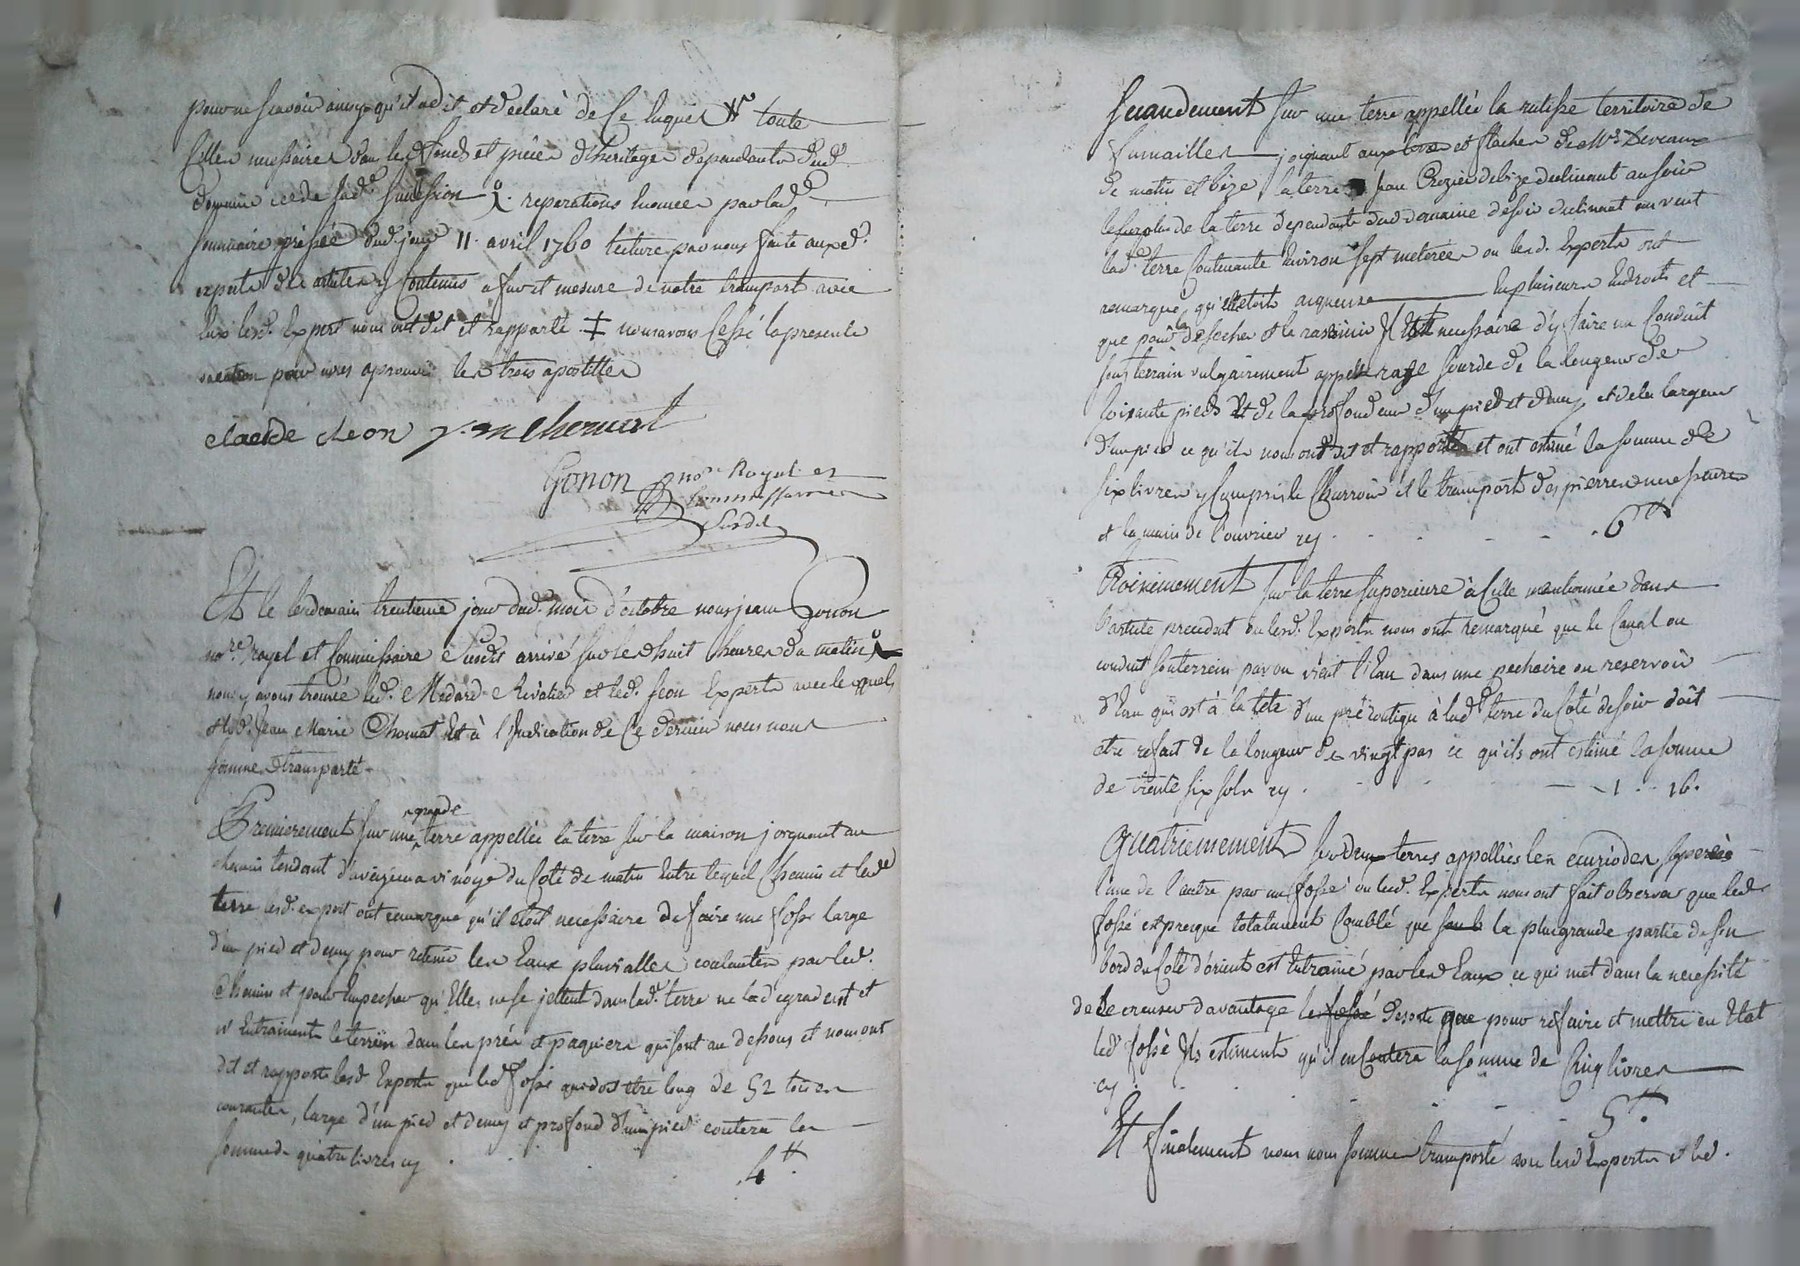 pour ne scavoir ainsy qu'il a dit et declaré de ce requis toute
celles necessaires dans les fonds et pièces d'heritages dependantes dud.
domaine de lad. succession reparations
sommaire prisée dud. jour 11. avril 1760 lecture par nous faite auxd.
experts des articles y contenus a fur et mesure de notre transport avec
eux lesd. Expert nous ont dit et rapporté ‡ nous avons cessé la presente
vacation pour nous aprouvé les trois apostilles
claude cheon Chomat
Gonon no.re Royal et
Commissaire
Susdit
Et le lendemain trentieme jour dud. mois d'octobre nous jean Gonon
no.re royal et Commissaire Susdit arrivé sur les huit heures du matin
nous y avons trouvé led. Medard Rivatier et led. Jeon Experts avec lesquels
et led. Jean Marie Chomat Et à l'Indication de Ce dernier nous nous
sommes transporté
Premierement sur une grande terre appellée la terre sur la maison joignant au
chemin tendant d'aveizieux a vinoye du Coté de matin Entre lequel Chemin et lad.
terre lesd. expert ont remarque qu'il etoit necessaire de faire une fosse large
d'un pied et demy pour retenir les Eaux pluvialles coulantes par led.
Chemin et pour Empecher qu'Elles ne se jettent dans lad. terre ne la degradent et
n'Entrainent le terrein dans les prés et paquiers qui sont au dessous et nous ont
dit et rapporté lesd. Experts que led. fossé qui doit etre long de 52 toises
courantes, large d'un pied et demy et profond d'un pied coutera la
somme de quatre livres cy . . . 4 ₶
Secondement sur une terre appellée la rutisse territoire de
fumailles joignant aux terres et flacher de Mr. Deveaux
de matin et bize la terre de Jean Crozier de bize declinant au soir
le surplus de la terre dependante dud. domaine de soir declinant au vent
lad. terre Contenante Environ sept meterées ou lesd. Experts ont
remarqué qu'elle etoit aiqueuse En plusieurs Endroits et
que pour la desecher et la rassainir Il Est necessaire d'y faire un Conduit
sous terrain vulgairement appellé raze sourde de la longeur de
soixante pieds Et de la profondeur d'un pied et demy et de la largeur
d'un pied ce qu'ils nous ont dit et rapporté et ont estimé la somme de
six livres y Compris le Charroir et le transport des pierres necessaires
et la main de l'ouvrier cy . . . 6 ₶
Troisiemement sur la terre superieure à Celle mentionnée dans
l'article precedent ou lesd. Experts nous ont remarqué que le Canal ou
conduit souterrein par ou vient l'Eau dans une pechoire ou reservoir
d'Eau qui est à la tete d'un pré contigu à lad. terre du Coté de soir doit
etre refait de la longeur de vingt pas ce qu'ils ont estimé la somme
de trente six sols cy . . . 1 . . 16.
Quatriemement sur deux terres appellées les eurioder separées
l'une de l'autre par un fossé ou lesd. Experts nous ont fait observer que led.
fossé est presque totalement Comblé que la plus grande partie de son
bord du Coté d'orient est Entrainé par les Eaux ce qui met dans la necessité
de le creuser davantage le fossé desorte que pour refaire et mettre en Etat
led. fossé Ils estiment qu'il en Coutera la somme de Cinq livres
cy . . . 5 ₶
Et finalement nous nous sommes transporté avec lesd. Experts et led.